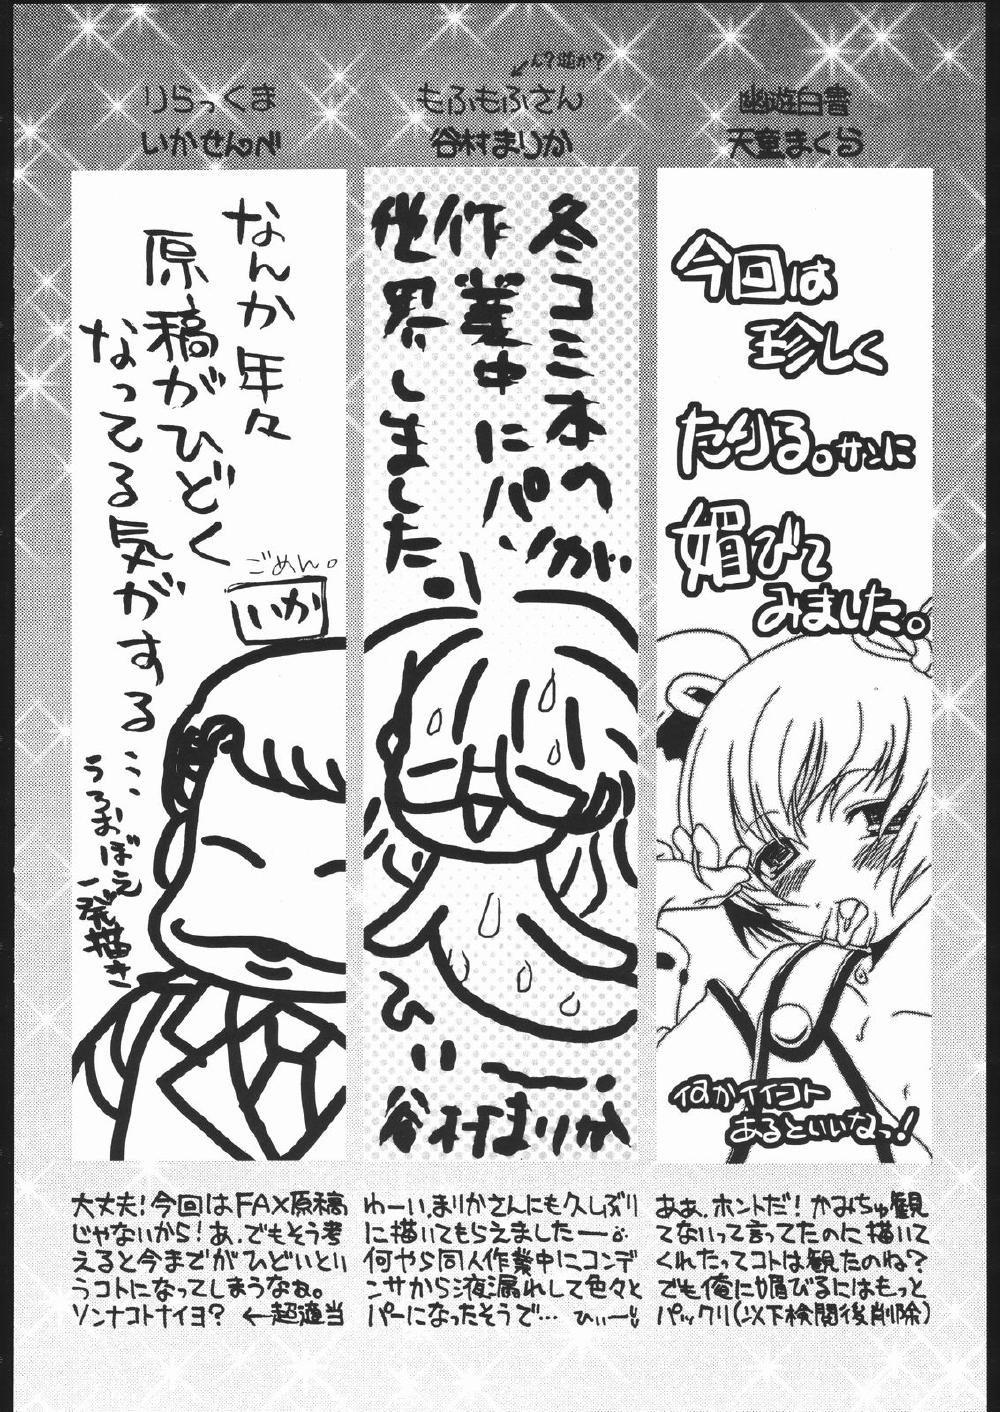 ん?逆か?
幽遊白書
天童まくら
今回は
珍しく
たりる。サンに
媚びて
みました。
何かイイコト
あるといいなっ!
ああ、ホントだ!かみちゅ観
てないって言ってたのに描いて
くれたってコトは観たのね?
でも俺に媚びるにはもっと
パックリ(以下検閲後削除)
もふもふさん
谷村まりか
冬コミ本の
作業中にパソが
他界しました
ひぃー
谷村まりか
わーい、まりかさんにも久しぶり
に描いてもらえましたー
何やら同人作業中にコンデ
ンサから液漏れして色々と
パーになったそうで… ひぃー
りらっくま
いかせんべ
なんか年々
原稿がひどく
なってる気がする……
ごめん。
いか
うろおぼえ
一発描き
大丈夫!今回はFAX原稿
じゃないから!あ、でもそう考
えると今までがひどいとい
うコトになってしまうなぁ。
ソンナコトナイヨ? ←超適当